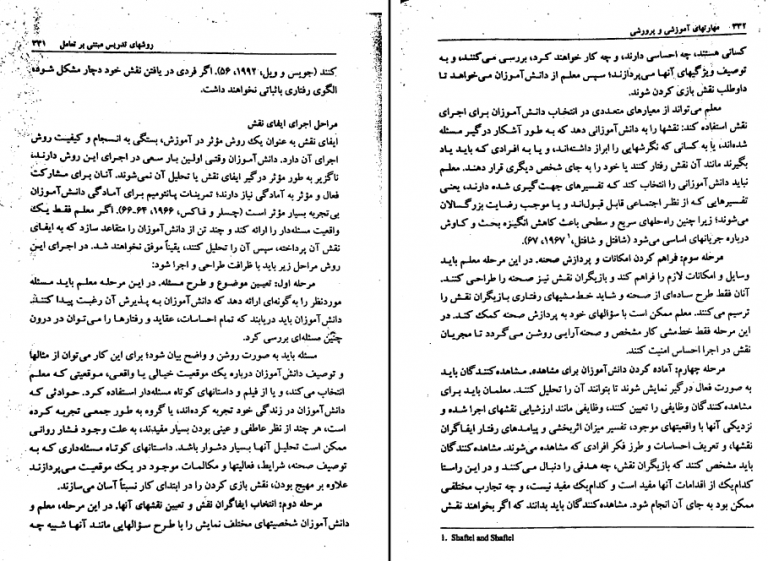 روشهای تدریس مبتنی بر تعامل ۳۳۱
کنند (جویس و ویل، ۱۹۹۲، ۵۶). اگر فردی در یافتن نقش خود دچار مشکل شود،
الگوی رفتاری باثباتی نخواهند داشت.
مراحل اجرای ایفای نقش
ایفای نقش به عنوان یک روش مؤثر در آموزش، بستگی به انسجام و کیفیت روش
اجرای آن دارد. دانش‌آموزان وقتی اولین بار سعی در اجرای این روش دارند،
ناگزیر به طور مؤثر درگیر ایفای نقش یا تحلیل آن نمی‌شوند. آنان برای مشارکت
فعال و مؤثر به آمادگی نیاز دارند؛ تمرینات پانتومیم برای آمادگی دانش‌آموزان
بی‌تجربه بسیار مؤثر است (چسلر و فاکس، ۱۹۶۶، ۶۴-۶۶). اگر معلم فقط یک
واقعیت مسئله‌دار را ارائه کند و چند تن از دانش‌آموزان را متقاعد سازد که به ایفای
نقش آن پرداخته، سپس آن را تحلیل کنند، یقیناً موفق نخواهند شد. در اجرای این
روش مراحل زیر باید با ظرافت طراحی و اجرا شود:
مرحله اول: تعیین موضوع و طرح مسئله. در این مرحله معلم باید مسئله
موردنظر را به‌گونه‌ای ارائه دهد که دانش‌آموزان به پذیرش آن رغبت پیدا کنند.
دانش‌آموزان باید دریابند که تمام احساسات، عقاید و رفتارها را می‌توان در درون
چنین مسئله‌ای بررسی کرد.
مسئله باید به صورت روشن و واضح بیان شود؛ برای این کار می‌توان از مثالها
و توصیف دانش‌آموزان درباره یک موقعیت خیالی یا واقعی، موقعیتی که معلم
انتخاب می‌کند، و یا از فیلم و داستانهای کوتاه مسئله‌دار استفاده کرد. حوادثی که
دانش‌آموزان در زندگی خود تجربه کرده‌اند، یا گروه به طور جمعی تجربه کرده
است، هر چند از نظر عاطفی و عینی بودن بسیار مفیدند، به علت وجود فشار روانی
ممکن است تحلیل آنها بسیار دشوار باشد. داستانهای کوتاه مسئله‌داری که به
توصیف صحنه، شرایط، فعالیتها و مکالمات موجود در یک موقعیت می‌پردازند
علاوه بر مهیج بودن، نقش بازی کردن را در ابتدای کار نسبتاً آسان می‌سازند.
مرحله دوم: انتخاب ایفاگران نقش و تعیین نقشهای آنها. در این مرحله، معلم و
دانش‌آموزان شخصیتهای مختلف نمایش را با طرح سؤالهایی مانند آنها شبیه چه
۳۳۲ مهارتهای آموزشی و پرورشی
کسانی هستند، چه احساسی دارند، و چه کار خواهند کرد، بررسی می‌کنند، و به
توصیف ویژگیهای آنها می‌پردازند؛ سپس معلم از دانش‌آموزان می‌خواهد تا
داوطلب نقش بازی کردن شوند.
معلم می‌تواند از معیارهای متعددی در انتخاب دانش‌آموزان برای اجرای
نقش استفاده کند: نقشها را به دانش‌آموزانی دهد که به طور آشکار درگیر مسئله
شده‌اند، یا به کسانی که نگرشهایی را ابراز داشته‌اند، و یا به افرادی که باید یاد
بگیرند مانند آن نقش رفتار کنند یا خود را به جای شخص دیگری قرار دهند. معلم
نباید دانش‌آموزانی را انتخاب کند که تفسیرهای جهت‌گیری شده دارند، یعنی
تفسیرهایی که از نظر اجتماعی قابل قبول‌اند و یا موجب رضایت بزرگسالان
می‌شوند؛ زیرا چنین راه‌حلهای سریع و سطحی باعث کاهش انگیزه بحث و کاوش
درباره جریانهای اساسی می‌شود (شافتل و شافتل،۱ ۱۹۶۷، ۶۷).
مرحله سوم: فراهم کردن امکانات و پردازش صحنه. در این مرحله معلم باید
وسایل و امکانات لازم را فراهم کند و بازیگران نقش نیز صحنه را طراحی کنند.
آنان فقط طرح ساده‌ای از صحنه و شاید خط‌مشیهای رفتاری بازیگران نقش را
ترسیم می‌کنند. معلم ممکن است با سؤالهای خود به پردازش صحنه کمک کند. در
این مرحله فقط خط‌مشی کار مشخص و صحنه‌آرایی روشن می‌گردد تا مجریان
نقش در اجرا احساس امنیت کنند.
مرحله چهارم: آماده کردن دانش‌آموزان برای مشاهده. مشاهده‌کنندگان باید
به صورت فعال درگیر نمایش شوند تا بتوانند آن را تحلیل کنند. معلمان باید برای
مشاهده‌کنندگان وظایفی را تعیین کنند، وظایفی مانند ارزشیابی نقشهای اجرا شده و
نزدیکی آنها با واقعیتهای موجود، تفسیر میزان اثربخشی و پیامدهای رفتار ایفاگران
نقشها، و تعریف احساسات و طرز فکر افرادی که مشاهده می‌شوند. مشاهده‌کنندگان
باید مشخص کنند که بازیگران نقش، چه هدفی را دنبال می‌کنند و در این راستا
کدام‌یک از اقدامات آنها مفید است و کدام‌یک مفید نیست، و چه تجارب مختلفی
ممکن بود به جای آن انجام شود. مشاهده‌کنندگان باید بدانند که اگر بخواهند نقش
1. Shaftel and Shaftel